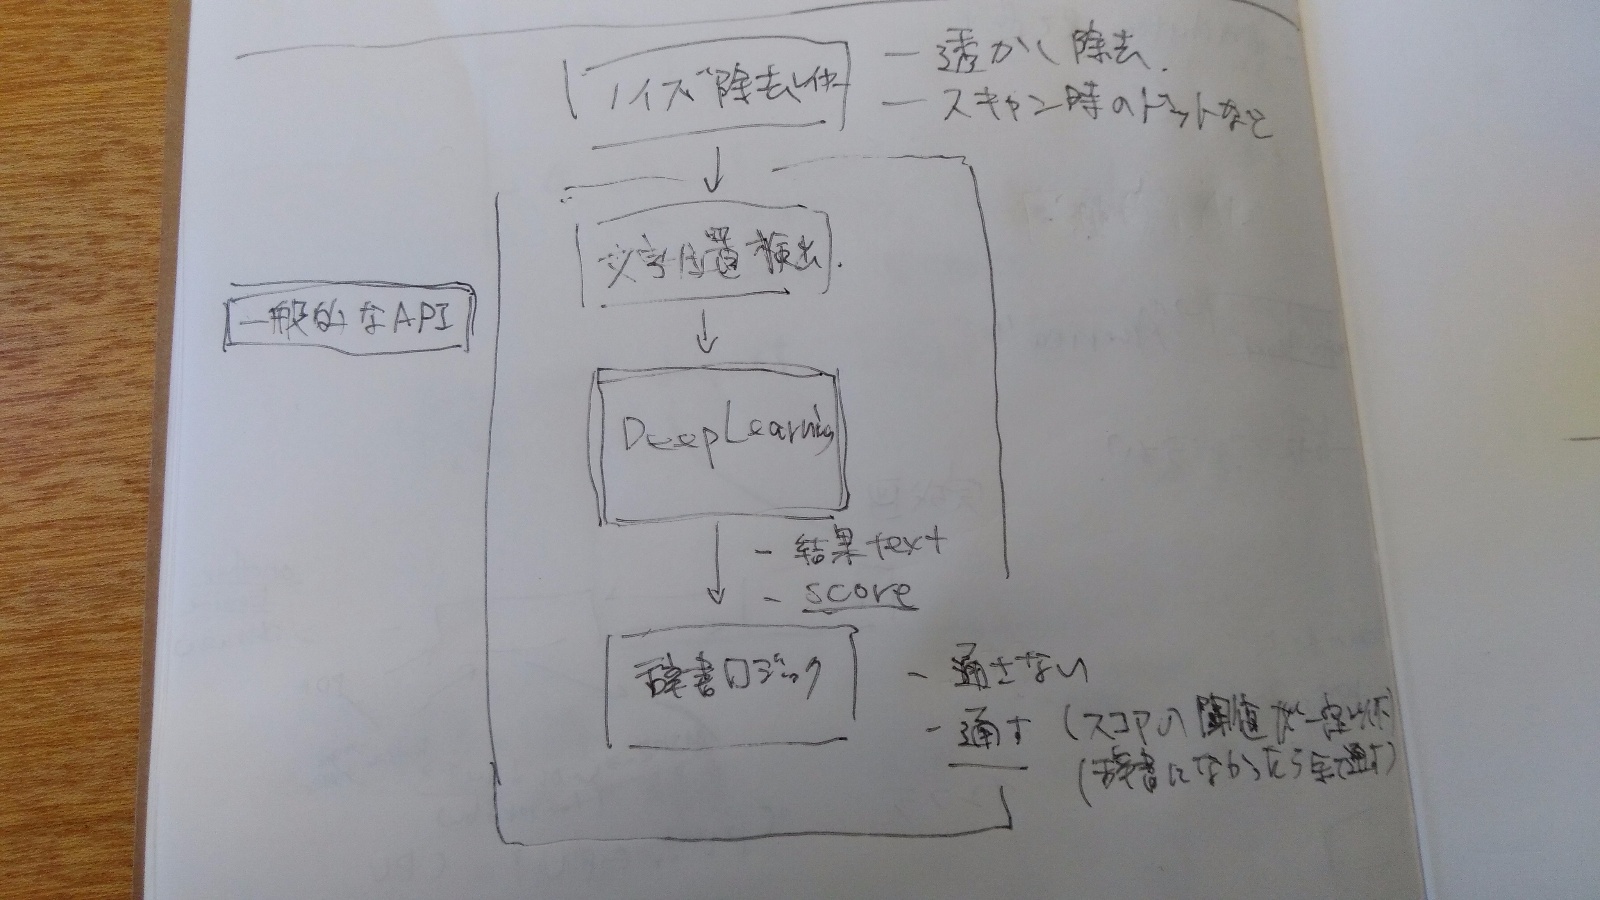 ノイズ除去レイヤー
- 透かし除去
- スキャン時のドットなど
文字位置検出
一般的なAPI
DeepLearning
- 結果text
- score
辞書ロジック
- 通さない
- 通す (スコアの閾値が一定以下)
(辞書になかったら全て通す)